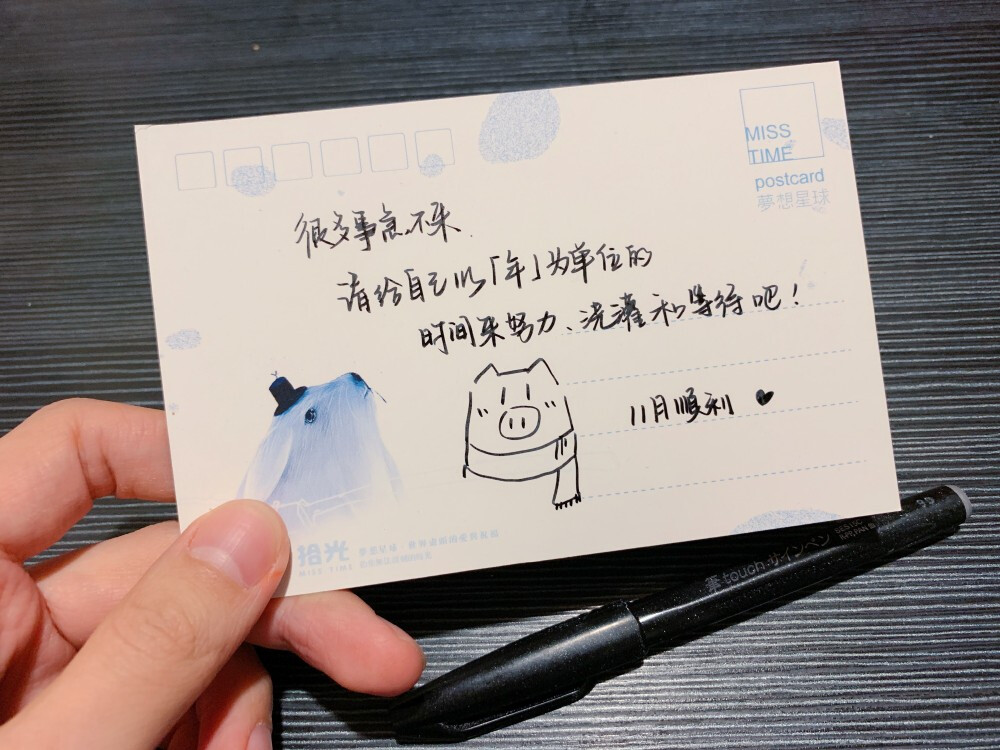 MISS
TIME
postcard
夢想星球
很多事急不来
请给自己以「年」为单位的
时间来努力、浇灌和等待吧！
11月顺利 ♥
拾光
MISS TIME
筆touch サインペン